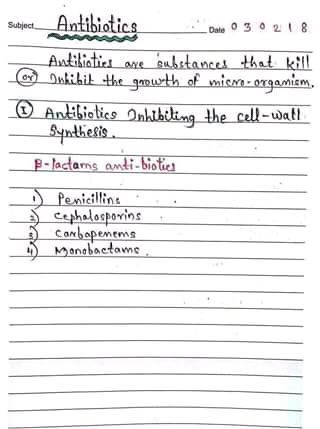 Subject Antibiotics Date 030218
Antibiotics are substances that kill
(or) Inhibit the growth of micro-organism.
(I) Antibiotics Inhibiting the cell-wall
Synthesis.
β-lactams anti-biotics
1) Penicillins
2) Cephalosporins
3) Carbapenems
4) Monobactams.